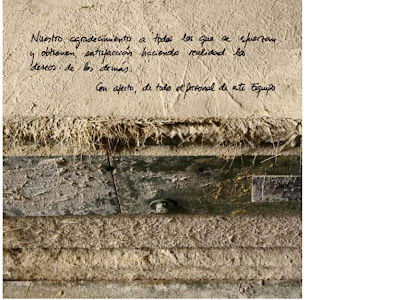 Nuestro agradecimiento a todos los que se esfuerzan
y obtienen satisfacción haciendo realidad los
deseos de los demás.
Con afecto, de todo el personal de este Equipo